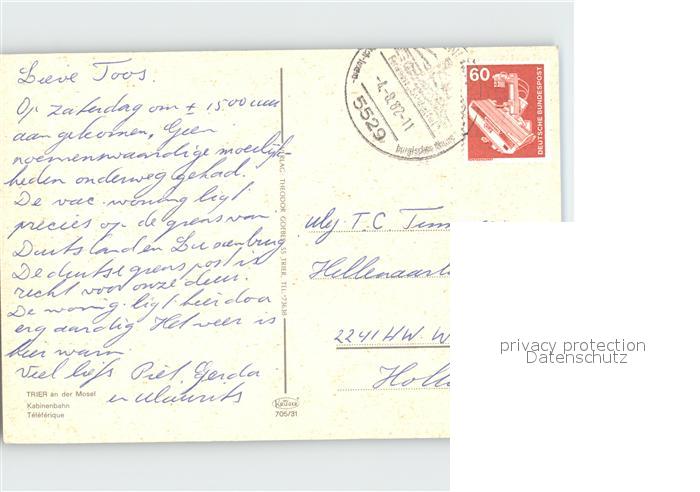 Lieve Toos.
Op zaterdag om ± 1500 uur
aangekomen, Geen
noemenswaardige moeilijk
heden onderweg gehad.
De vac. woning ligt
precies op de grens van
Duitsland en Luxemburg
De duitse grenspost is
recht voor onze deur.
De woning ligt hierdoor
erg aardig Het weer is
hier warm
Veel liefs Piet, Gerda
en Maurits
TRIER an der Mosel
Kabinenbahn
Téléférique
VERLAG THEODOR GOEBEL, 55 TRIER, TEL.
KRÜGER
705/31
5529
-4.-8.82-11
60
DEUTSCHE BUNDESPOST
Mej. T.C
2241 HW. W
Holl
privacy protection
Datenschutz